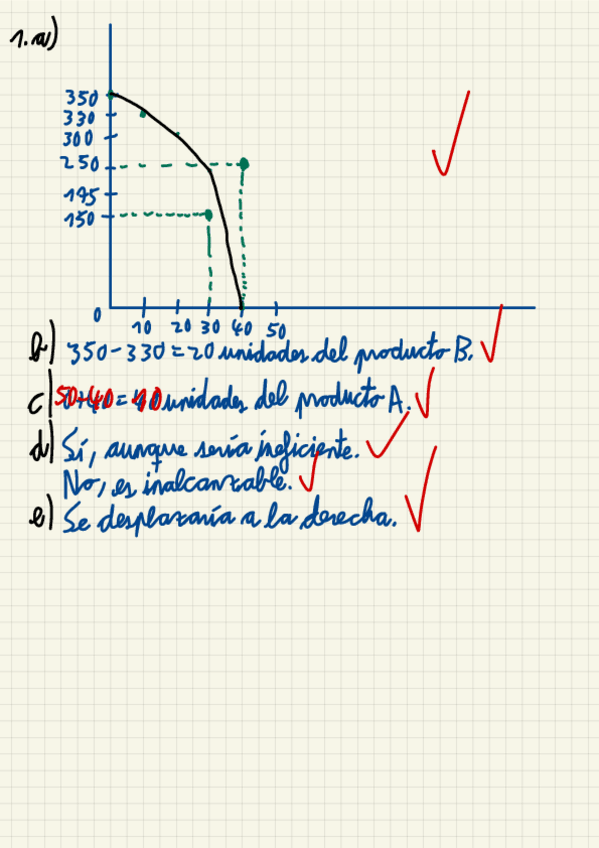 1.a)
350
330
300
250
195
150
0
10 20 30 40 50
b) 350-330=20 unidades del producto B.
c) 50-40=10 unidades del producto A.
d) Sí, aunque sería ineficiente.
No, es inalcanzable.
e) Se desplazaría a la derecha.